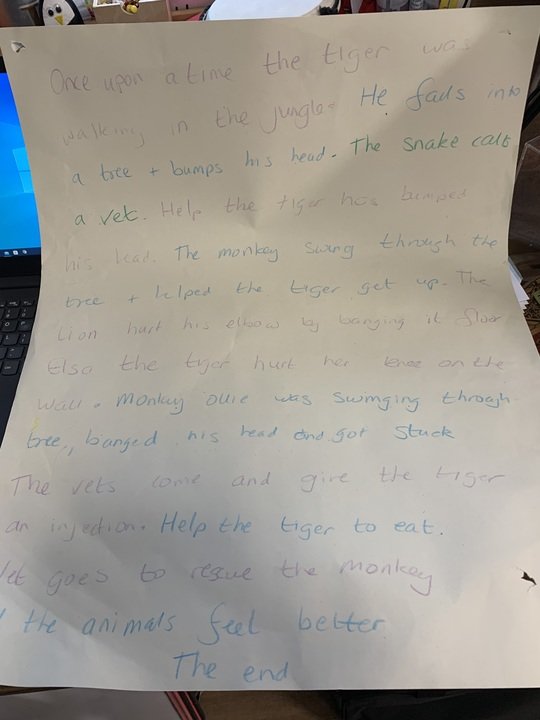 Once upon a time the tiger was
walking in the jungle. He falls into
a tree + bumps his head. The snake calls
a vet. Help the tiger has bumped
his head. The monkey swing through the
tree + helped the tiger get up. The
Lion hurt his elbow by banging it floor
Elsa the tiger hurt her knee on the
wall. Monkey ollie was swinging through
tree, banged his head and got stuck
The vets come and give the tiger
an injection. Help the tiger to eat.
Vet goes to rescue the monkey
the animals feel better
The end